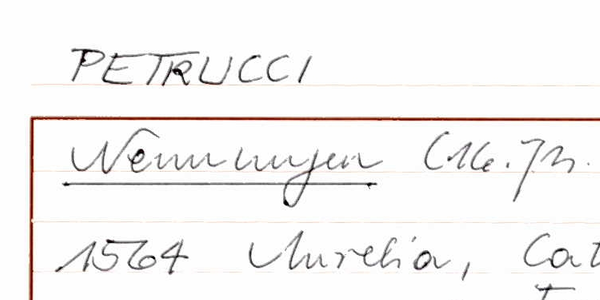 PETRUCCI
Nennungen (16. Jh.
1564 Aurelia, Cat